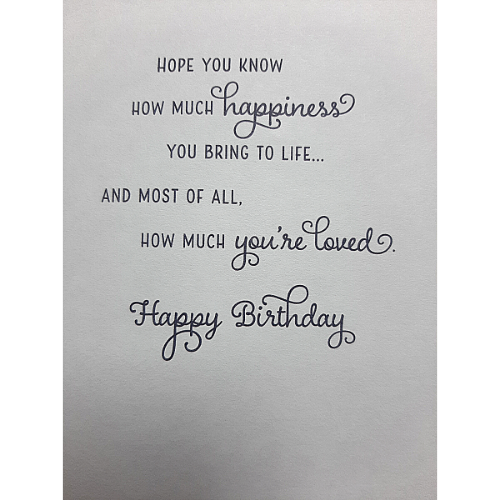 HOPE YOU KNOW
HOW MUCH happiness
YOU BRING TO LIFE...
AND MOST OF ALL,
HOW MUCH you're loved.
Happy Birthday